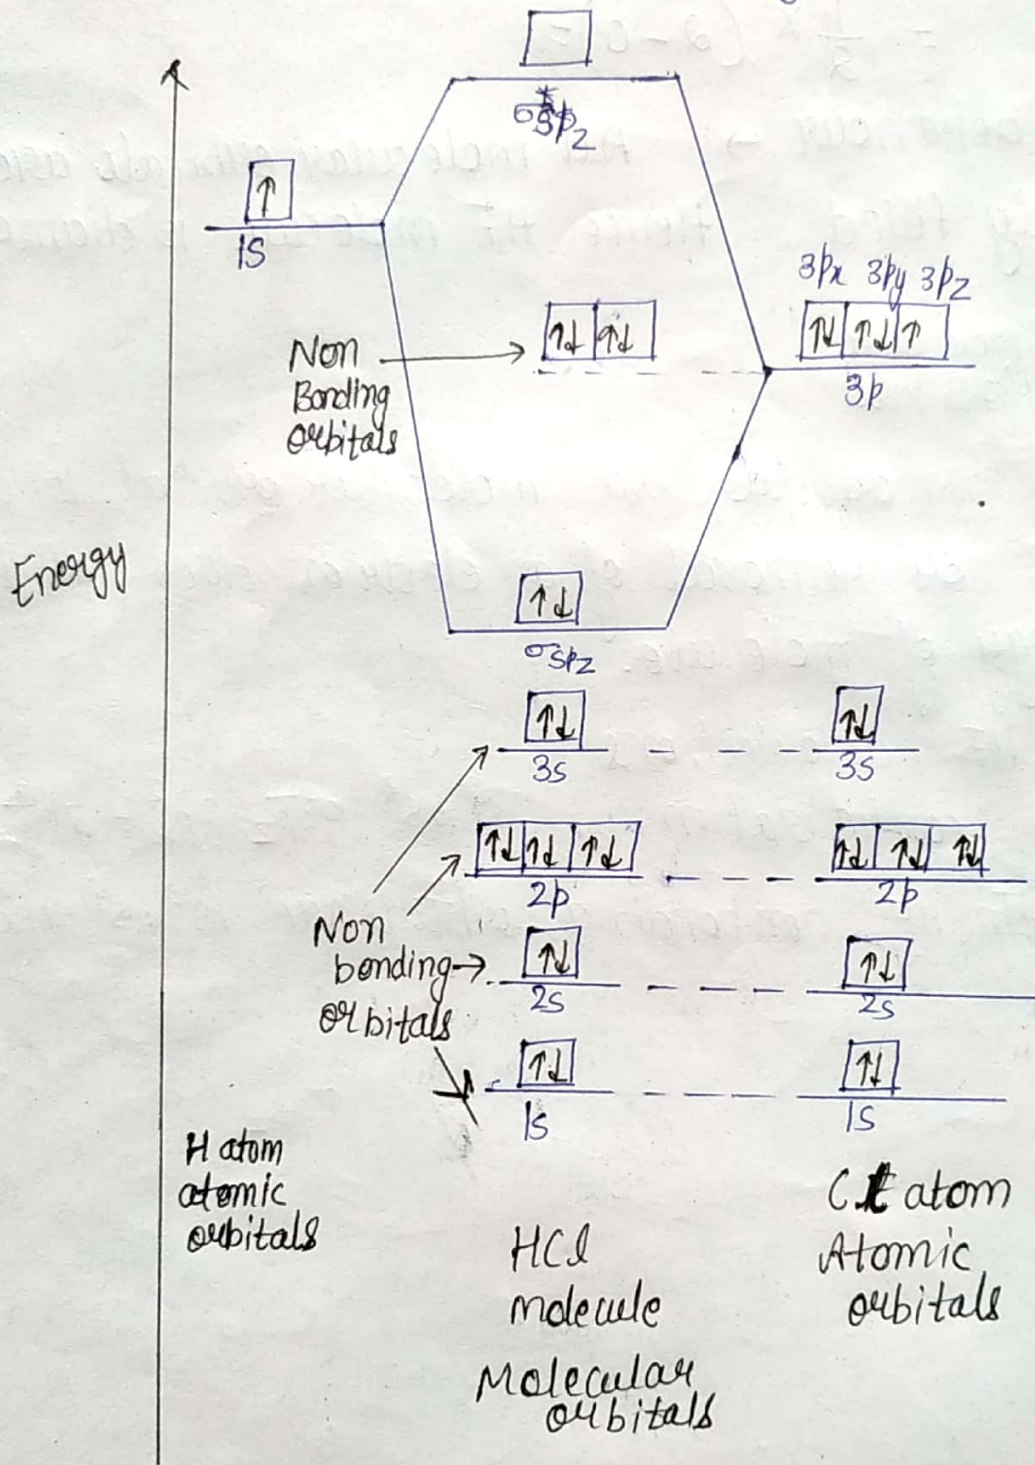 σ*spz
↑
1s
3px 3py 3pz
↑↓ ↑↓
↑↓ ↑↓ ↑
3p
Non
Bonding
orbitals
Energy
↑↓
σspz
↑↓
↑↓
3s
3s
↑↓ ↑↓ ↑↓
↑↓ ↑↓ ↑↓
2p
2p
Non
bonding
orbitals
↑↓
↑↓
2s
2s
↑↓
↑↓
1s
1s
H atom
atomic
orbitals
HCl
molecule
Molecular
orbitals
Cl atom
Atomic
orbitals